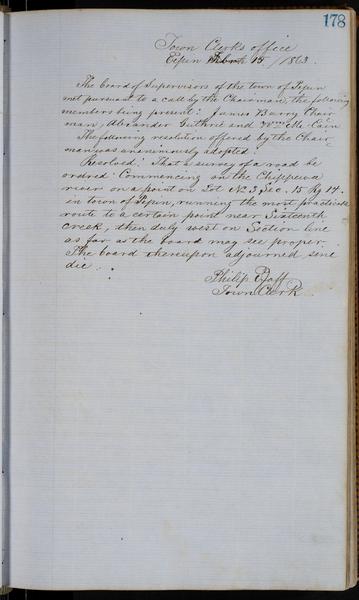 178
Town Clerks office
Pepin 15 / 1863.
The board of Supervisors of the town of Pepin
met pursuant to a call by the Chairman, the following
members being present: James Barry Chair
man, Alexander Guthrie and Wm Mc Cain
The following resolution offered by the Chair-
man was unanimously adopted
Resolved: That a survey of a road be
ordred: Commencing on the Chippewa
river on a point on Lot No 3 Sec. 15 Rg 14.
in town of Pepin, running the most practicable
route to a certain point near Sixteenth
creek, then duly west on Section line
as far as the board may see proper.
The board thereupon adjourned sine
die.
Philip
Town Clerk